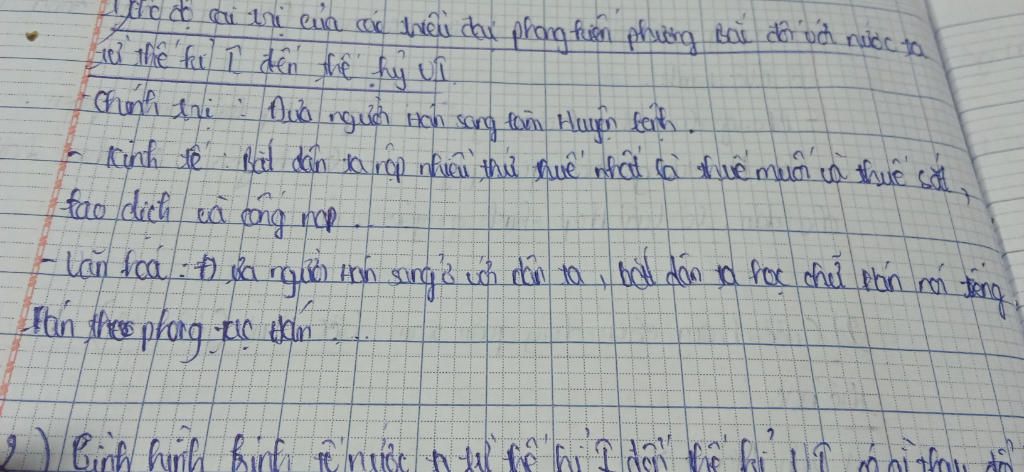 1) Chế độ cai trị của các triều đại phong kiến phương Bắc đối với nước ta
từ thế kỉ I đến thế kỷ VI
- Chính trị : Đưa người Hán sang làm Huyện lệnh.
- Kinh tế : Bắt dân ta nộp nhiều thứ thuế nhất là thuế muối và thuế sắt,
lao dịch và cống nạp.
- Văn hoá : Đưa người Hán sang ở với dân ta, bắt dân ta học chữ Hán nói tiếng
Hán theo phong tục Hán ...
2) hình kinh tế nước ta từ thế kỉ I đến thế kỉ VI có gì thay